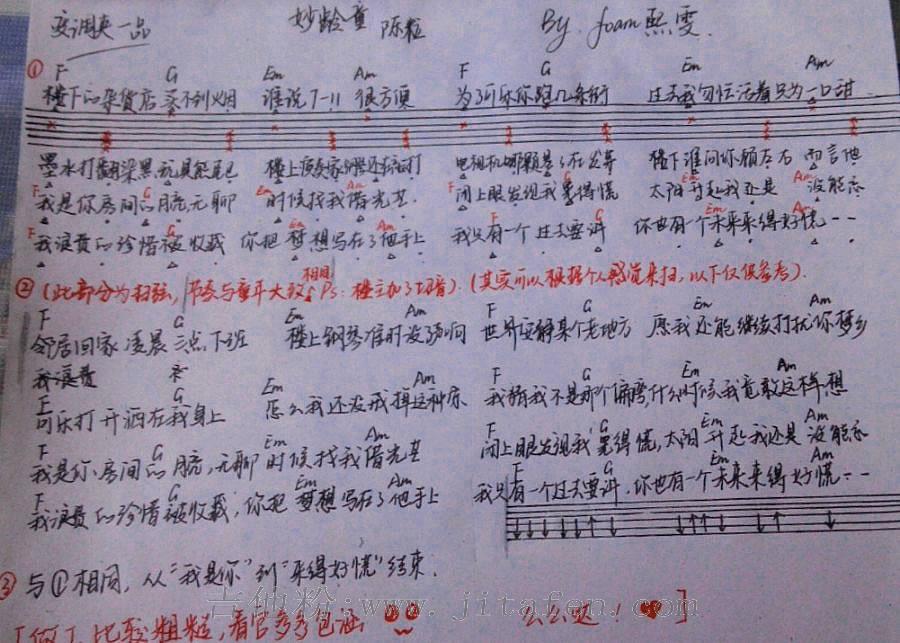 变调夹一品 妙龄童 陈粒 By. foam熙雯.
① F G Em Am F G Em Am
楼下的杂货店买不到烟 谁说7-11很方便 为了可乐你跑几条街 过去我匆忙活着只为一口甜
墨水打翻染黑 楼上 还在 打 电视机 楼下谁问你顾左右而言他
F G Em Am F G Em Am
我是你房间的月亮,无聊 时候找我借光芒. 闭上眼发现我累得慌 太阳升起我还是没能忘
F G Em Am F G Em Am
我浪费的珍惜被收藏 你把梦想写在了他手上 我只有一个过去要讲 你也有一个未来来得好慌--
相同
② (此部分为扫弦, 节奏与童年大致 Ps: 楼主加了切音). (其实可以根据个人感觉来扫, 以下仅供参考).
F G Em Am F G Em Am
邻居回家凌晨三点下班 楼上钢琴准时没了声响 世界安静某个老地方 愿我还能继续打扰你梦乡
我浪费
F G Em Am F G Em Am
可乐打开洒在我身上 怎么我还没戒掉这种 我猜我不是那个偏旁,什么时候我竟敢这样想
F G Em Am G Em Am
我是你房间的月亮,无聊时候找我借光芒 闭上眼发现我累得慌,太阳升起我还是没能忘
F G Em Am F G Em Am
我浪费的珍惜被收藏,你把梦想写在了他手上 我只有一个过去要讲.你也有一个未来来得好慌--
③ 与①相同, 从“我是你”到“来得好慌”结束.
[做了比较粗糙,看官多多包涵 么么哒!]
吉他粉:www.jitafen.com